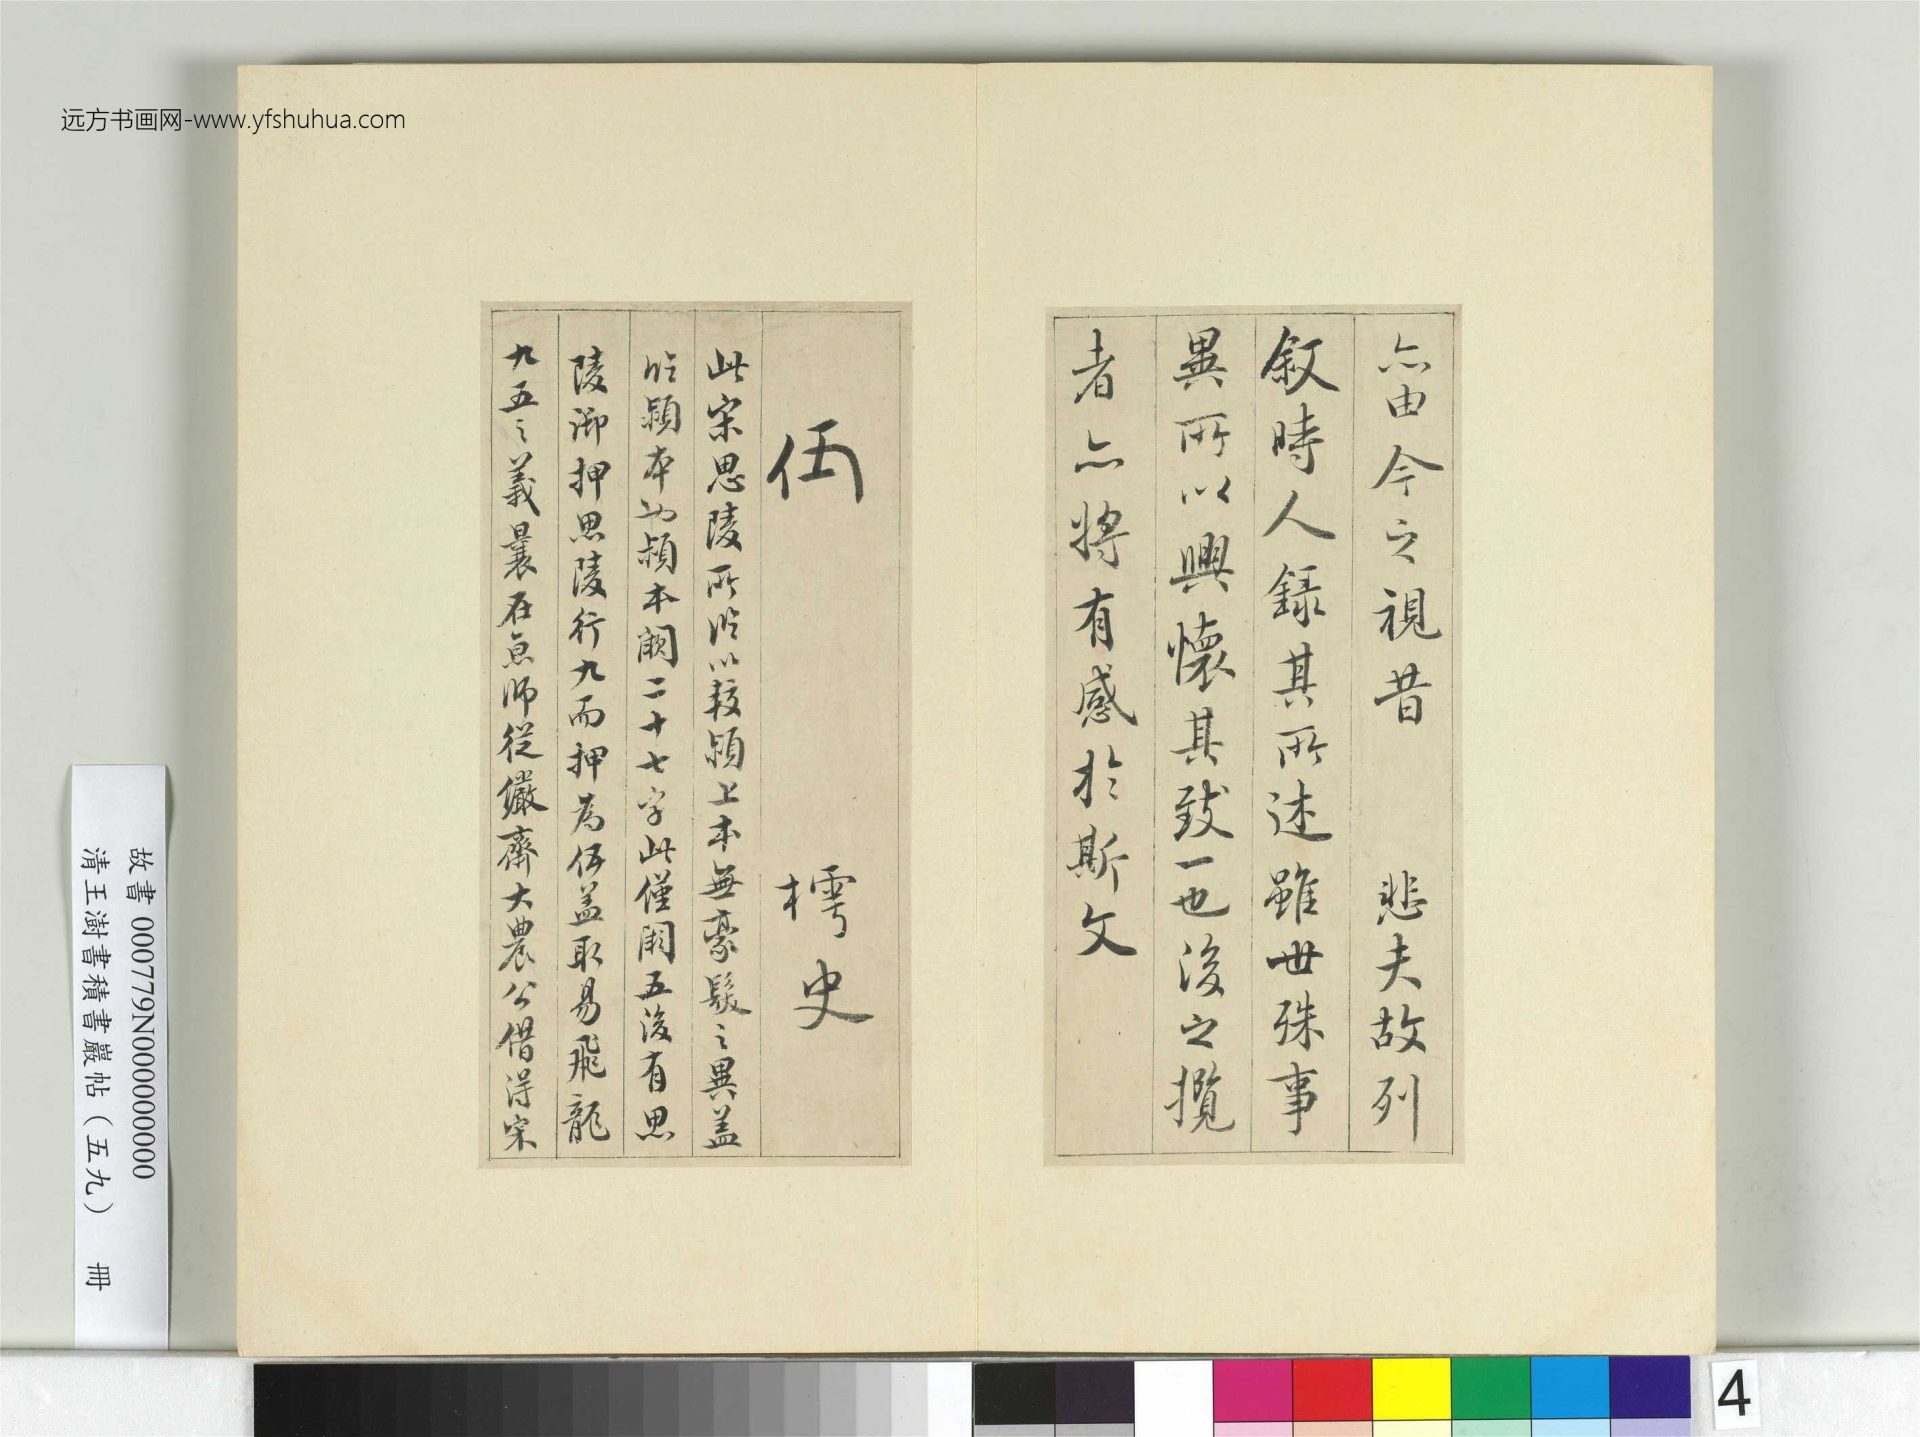 远方书画网-www.yfshuhua.com
亦由今之視昔 悲夫故列
叙時人錄其所述雖世殊事
異所以興懷其致一也後之攬
者亦將有感於斯文
史
此宋思陵所臨以較潁上本無豪髮之異蓋
臨潁本也潁本闕二十七字此僅闕五後有思
陵御押思陵行九而押為伍蓋取易飛龍
九五之義曩在京師從儼齋大農公借得宋
故書 000779N000000000
清王澍書積書巖帖（五九） 冊
4